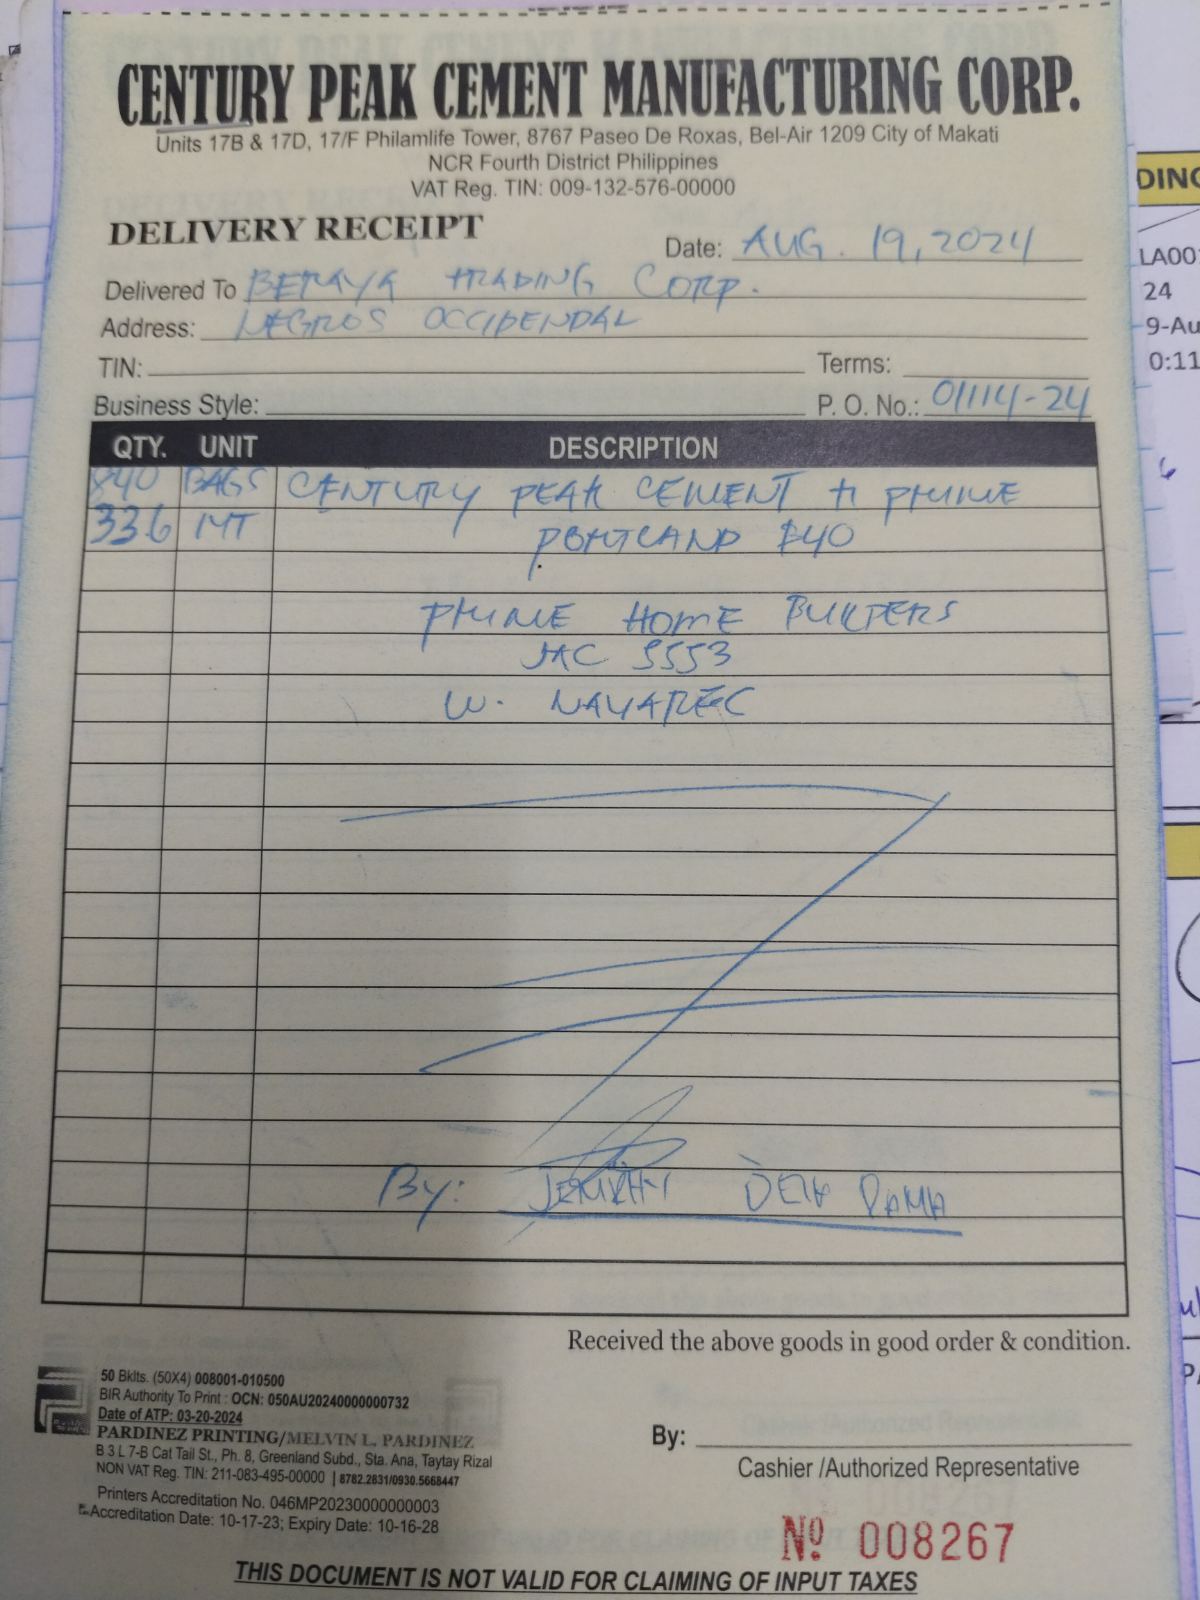 CENTURY PEAK CEMENT MANUFACTURING CORP.
Units 17B & 17D, 17/F Philamlife Tower, 8767 Paseo De Roxas, Bel-Air 1209 City of Makati
NCR Fourth District Philippines
VAT Reg. TIN: 009-132-576-00000
DELIVERY RECEIPT
Date: AUG. 19, 2024
Delivered To TRADING CORP.
Address: NEGROS OCCIDENDAL
TIN: Terms:
Business Style: P. O. No.: 01114-24
QTY. UNIT DESCRIPTION
840 BAGS CENTURY PEAK CEMENT PRIME
33.6 MT PORTLAND 840
PRIME HOME BUILDERS
5553
W.
By: DELA RAMA
Received the above goods in good order & condition.
50 Bklts. (50X4) 008001-010500
BIR Authority To Print : OCN: 050AU20240000000732
Date of ATP: 03-20-2024
PARDINEZ PRINTING/MELVIN L. PARDINEZ
B 3 L 7-B Cat Tail St., Ph. 8, Greenland Subd., Sta. Ana, Taytay Rizal
NON VAT Reg. TIN: 211-083-495-00000 | 8782.2831/0930.5668447
Printers Accreditation No. 046MP20230000000003
Accreditation Date: 10-17-23; Expiry Date: 10-16-28
By:
Cashier /Authorized Representative
Nº 008267
THIS DOCUMENT IS NOT VALID FOR CLAIMING OF INPUT TAXES